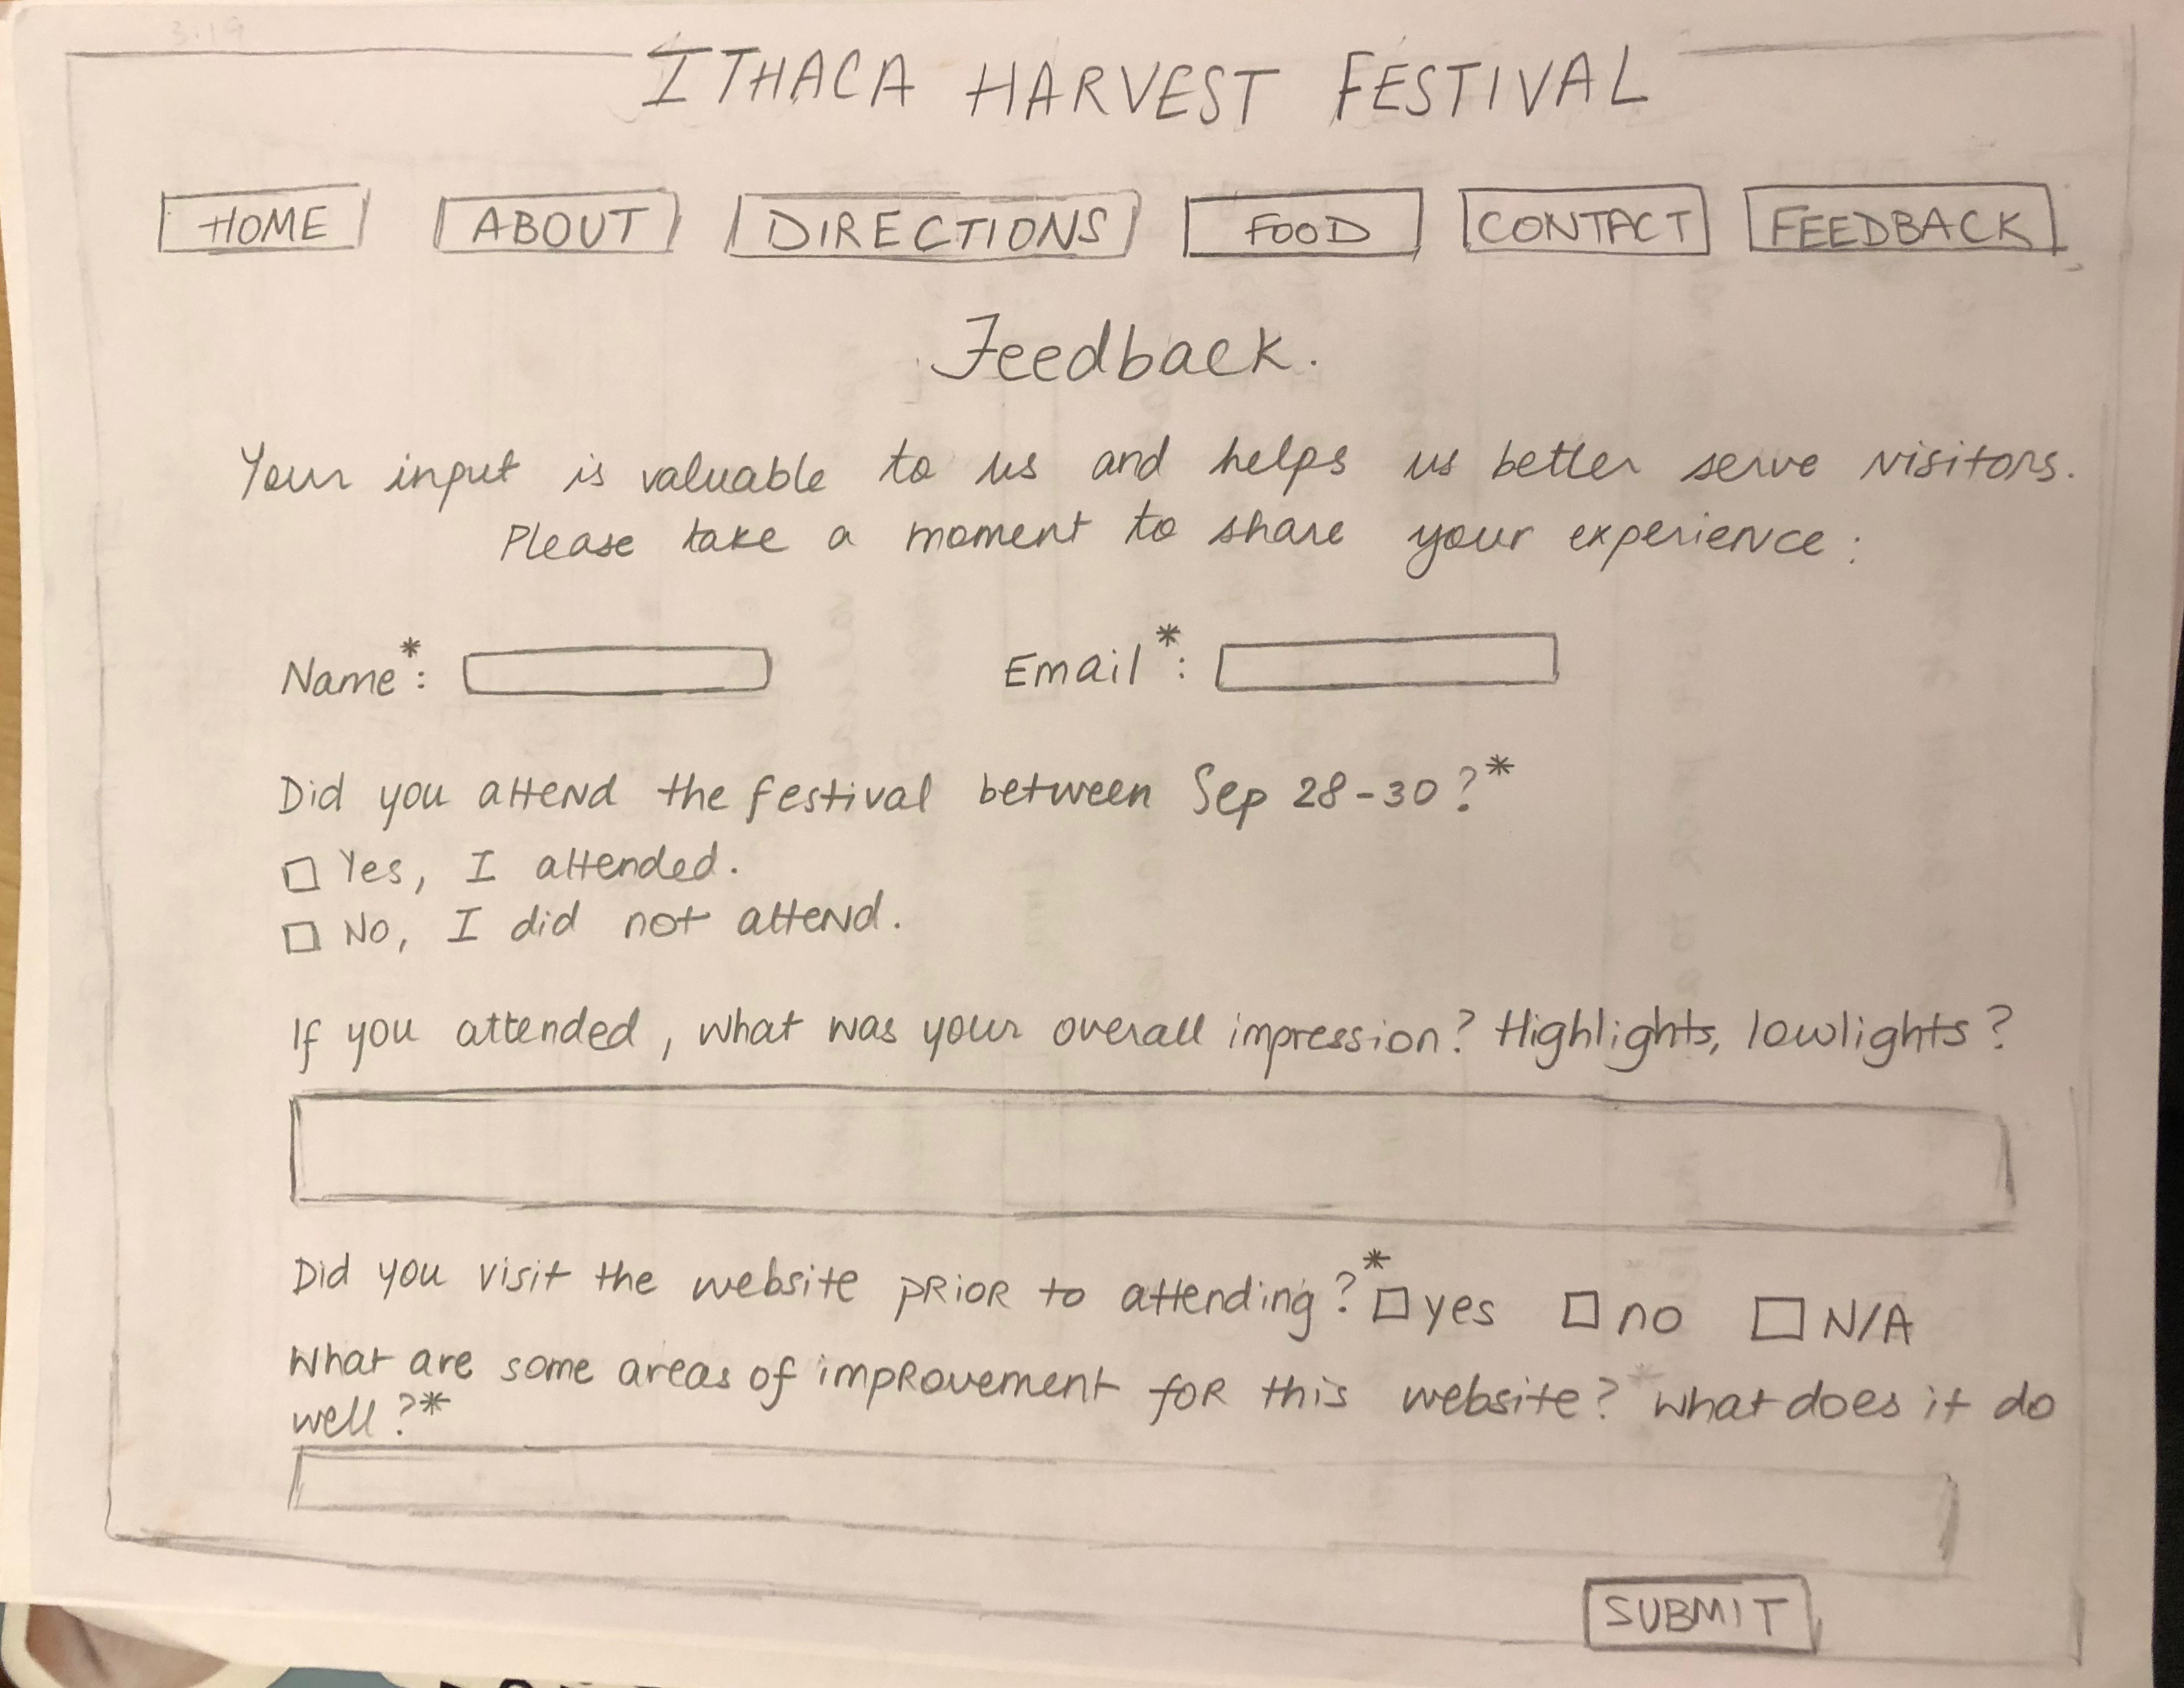 ITHACA HARVEST FESTIVAL
HOME ABOUT DIRECTIONS FOOD CONTACT FEEDBACK
Feedback.
Your input is valuable to us and helps us better serve visitors.
Please take a moment to share your experience:
Name*: Email*:
Did you attend the festival between Sep 28-30?*
Yes, I attended.
No, I did not attend.
If you attended, what was your overall impression? Highlights, lowlights?
Did you visit the website prior to attending?* yes no N/A
What are some areas of improvement for this website? What does it do
well?*
SUBMIT